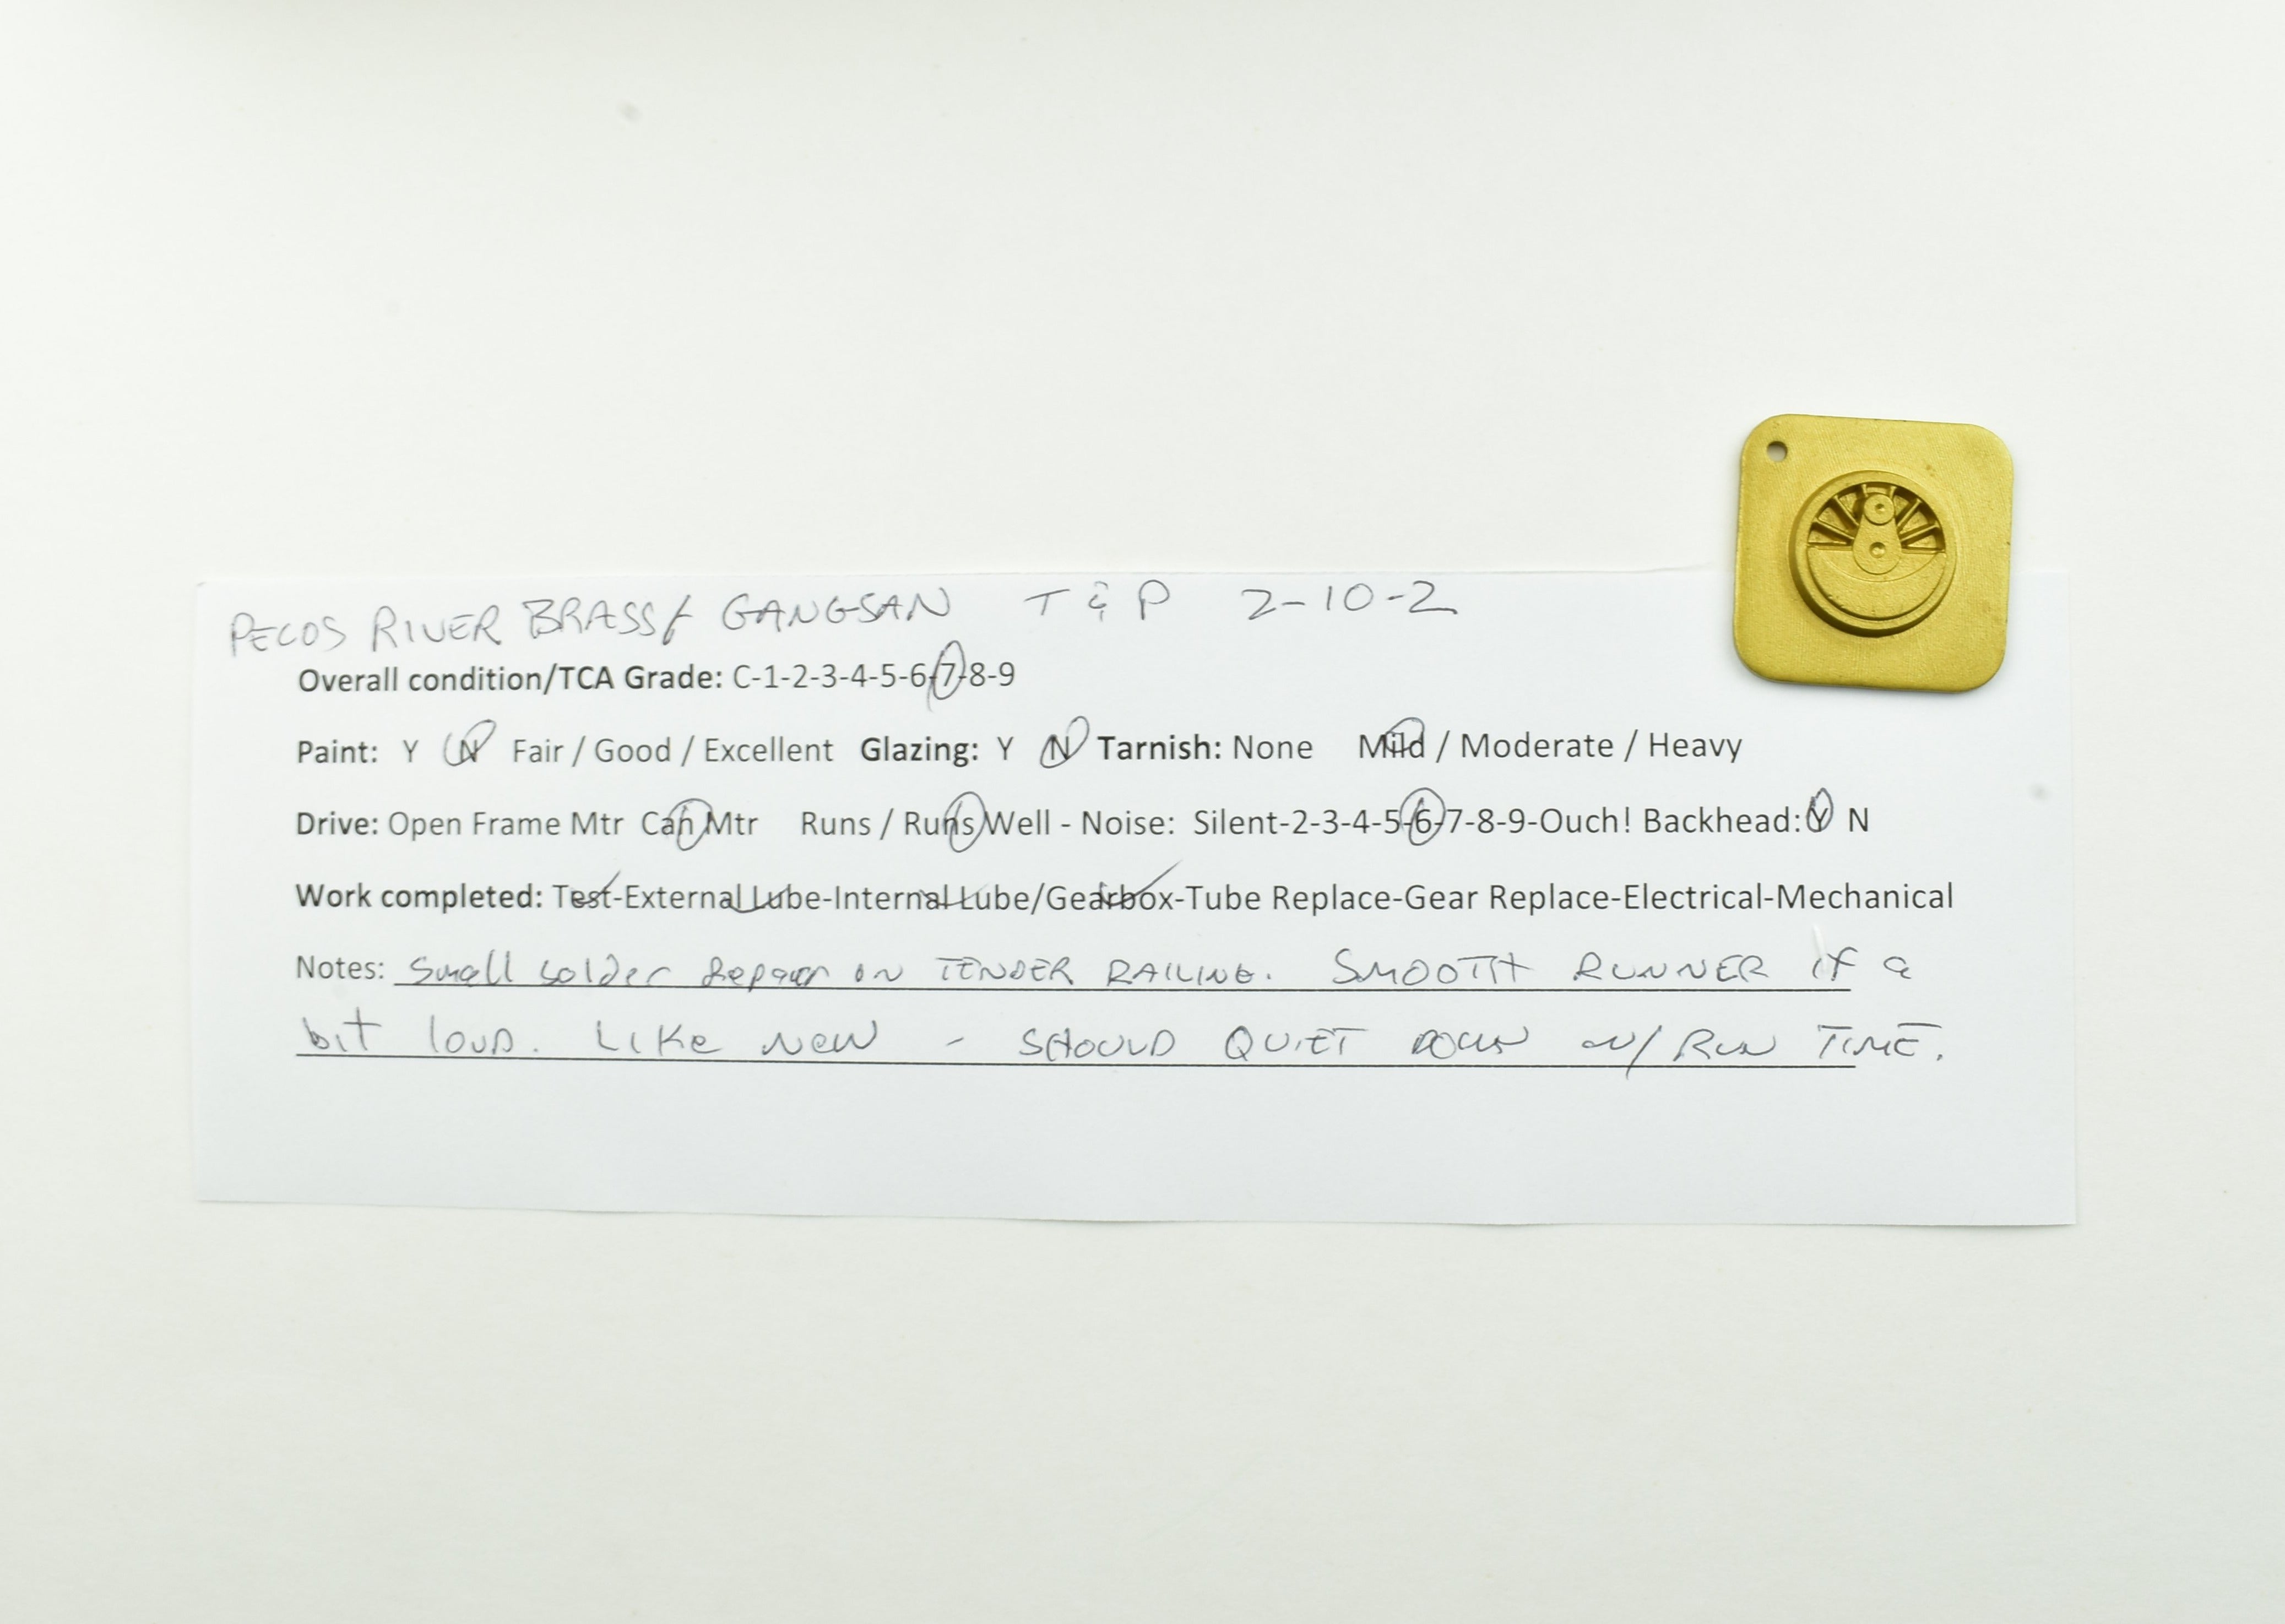 PECOS RIVER BRASS/ GANGSAN T & P 2-10-2
Overall condition/TCA Grade: C-1-2-3-4-5-6-7-8-9
Paint: Y N Fair / Good / Excellent Glazing: Y N Tarnish: None Mild / Moderate / Heavy
Drive: Open Frame Mtr Can Mtr Runs / Runs Well - Noise: Silent-2-3-4-5-6-7-8-9-Ouch! Backhead: Y N
Work completed: Test-External Lube-Internal Lube/Gearbox-Tube Replace-Gear Replace-Electrical-Mechanical
Notes: Small solder Repair on TENDER RAILING. SMOOTH RUNNER if a
bit loud. Like New - SHOULD QUIET DOWN w/ RUN TIME.